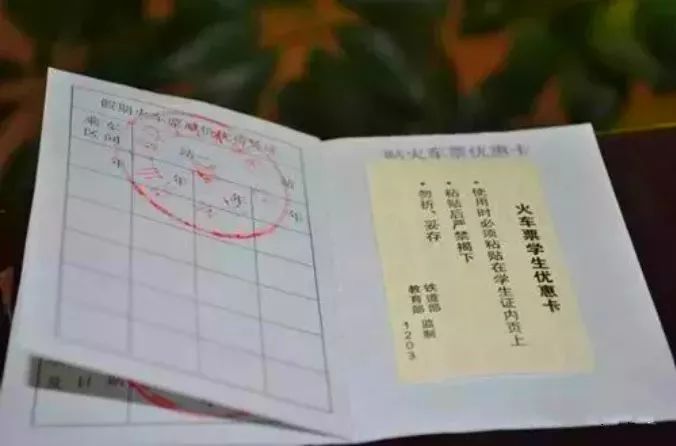 假期火车票减价优待凭证
乘车区间
站—
站
年
年
年
年
贴火车票优惠卡
火车票学生优惠卡
• 使用时必须粘贴在学生证内页上
• 粘贴后严禁揭下
• 勿折、妥存
铁道部
教育部
监制
1203